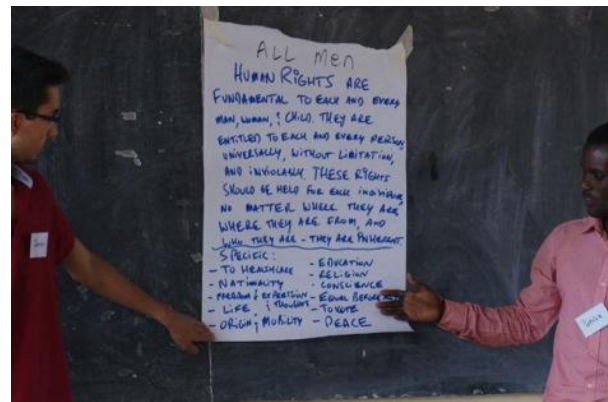 ALL Men
HUMAN RIGHTS ARE
FUNDAMENTAL TO EACH AND EVERY
MAN, WOMAN, & CHILD. THEY ARE
ENTITLED TO EACH AND EVERY PERSON,
UNIVERSALLY, WITHOUT LIMITATION,
AND INVIOLABLY. THESE RIGHTS
SHOULD BE HELD FOR EACH INDIVIDUAL
NO MATTER WHERE THEY ARE,
WHERE THEY ARE FROM, AND
WHO THEY ARE - THEY ARE INHERENT.
SPECIFIC:
- TO HEALTHCARE
- NATIONALITY
- FREEDOM & EXPRESSION
& THOUGHT
- LIFE
- ORIGIN & MOBILITY
- EDUCATION
- RELIGION
- CONSCIENCE
- EQUAL BEFORE
- TO VOTE
- PEACE